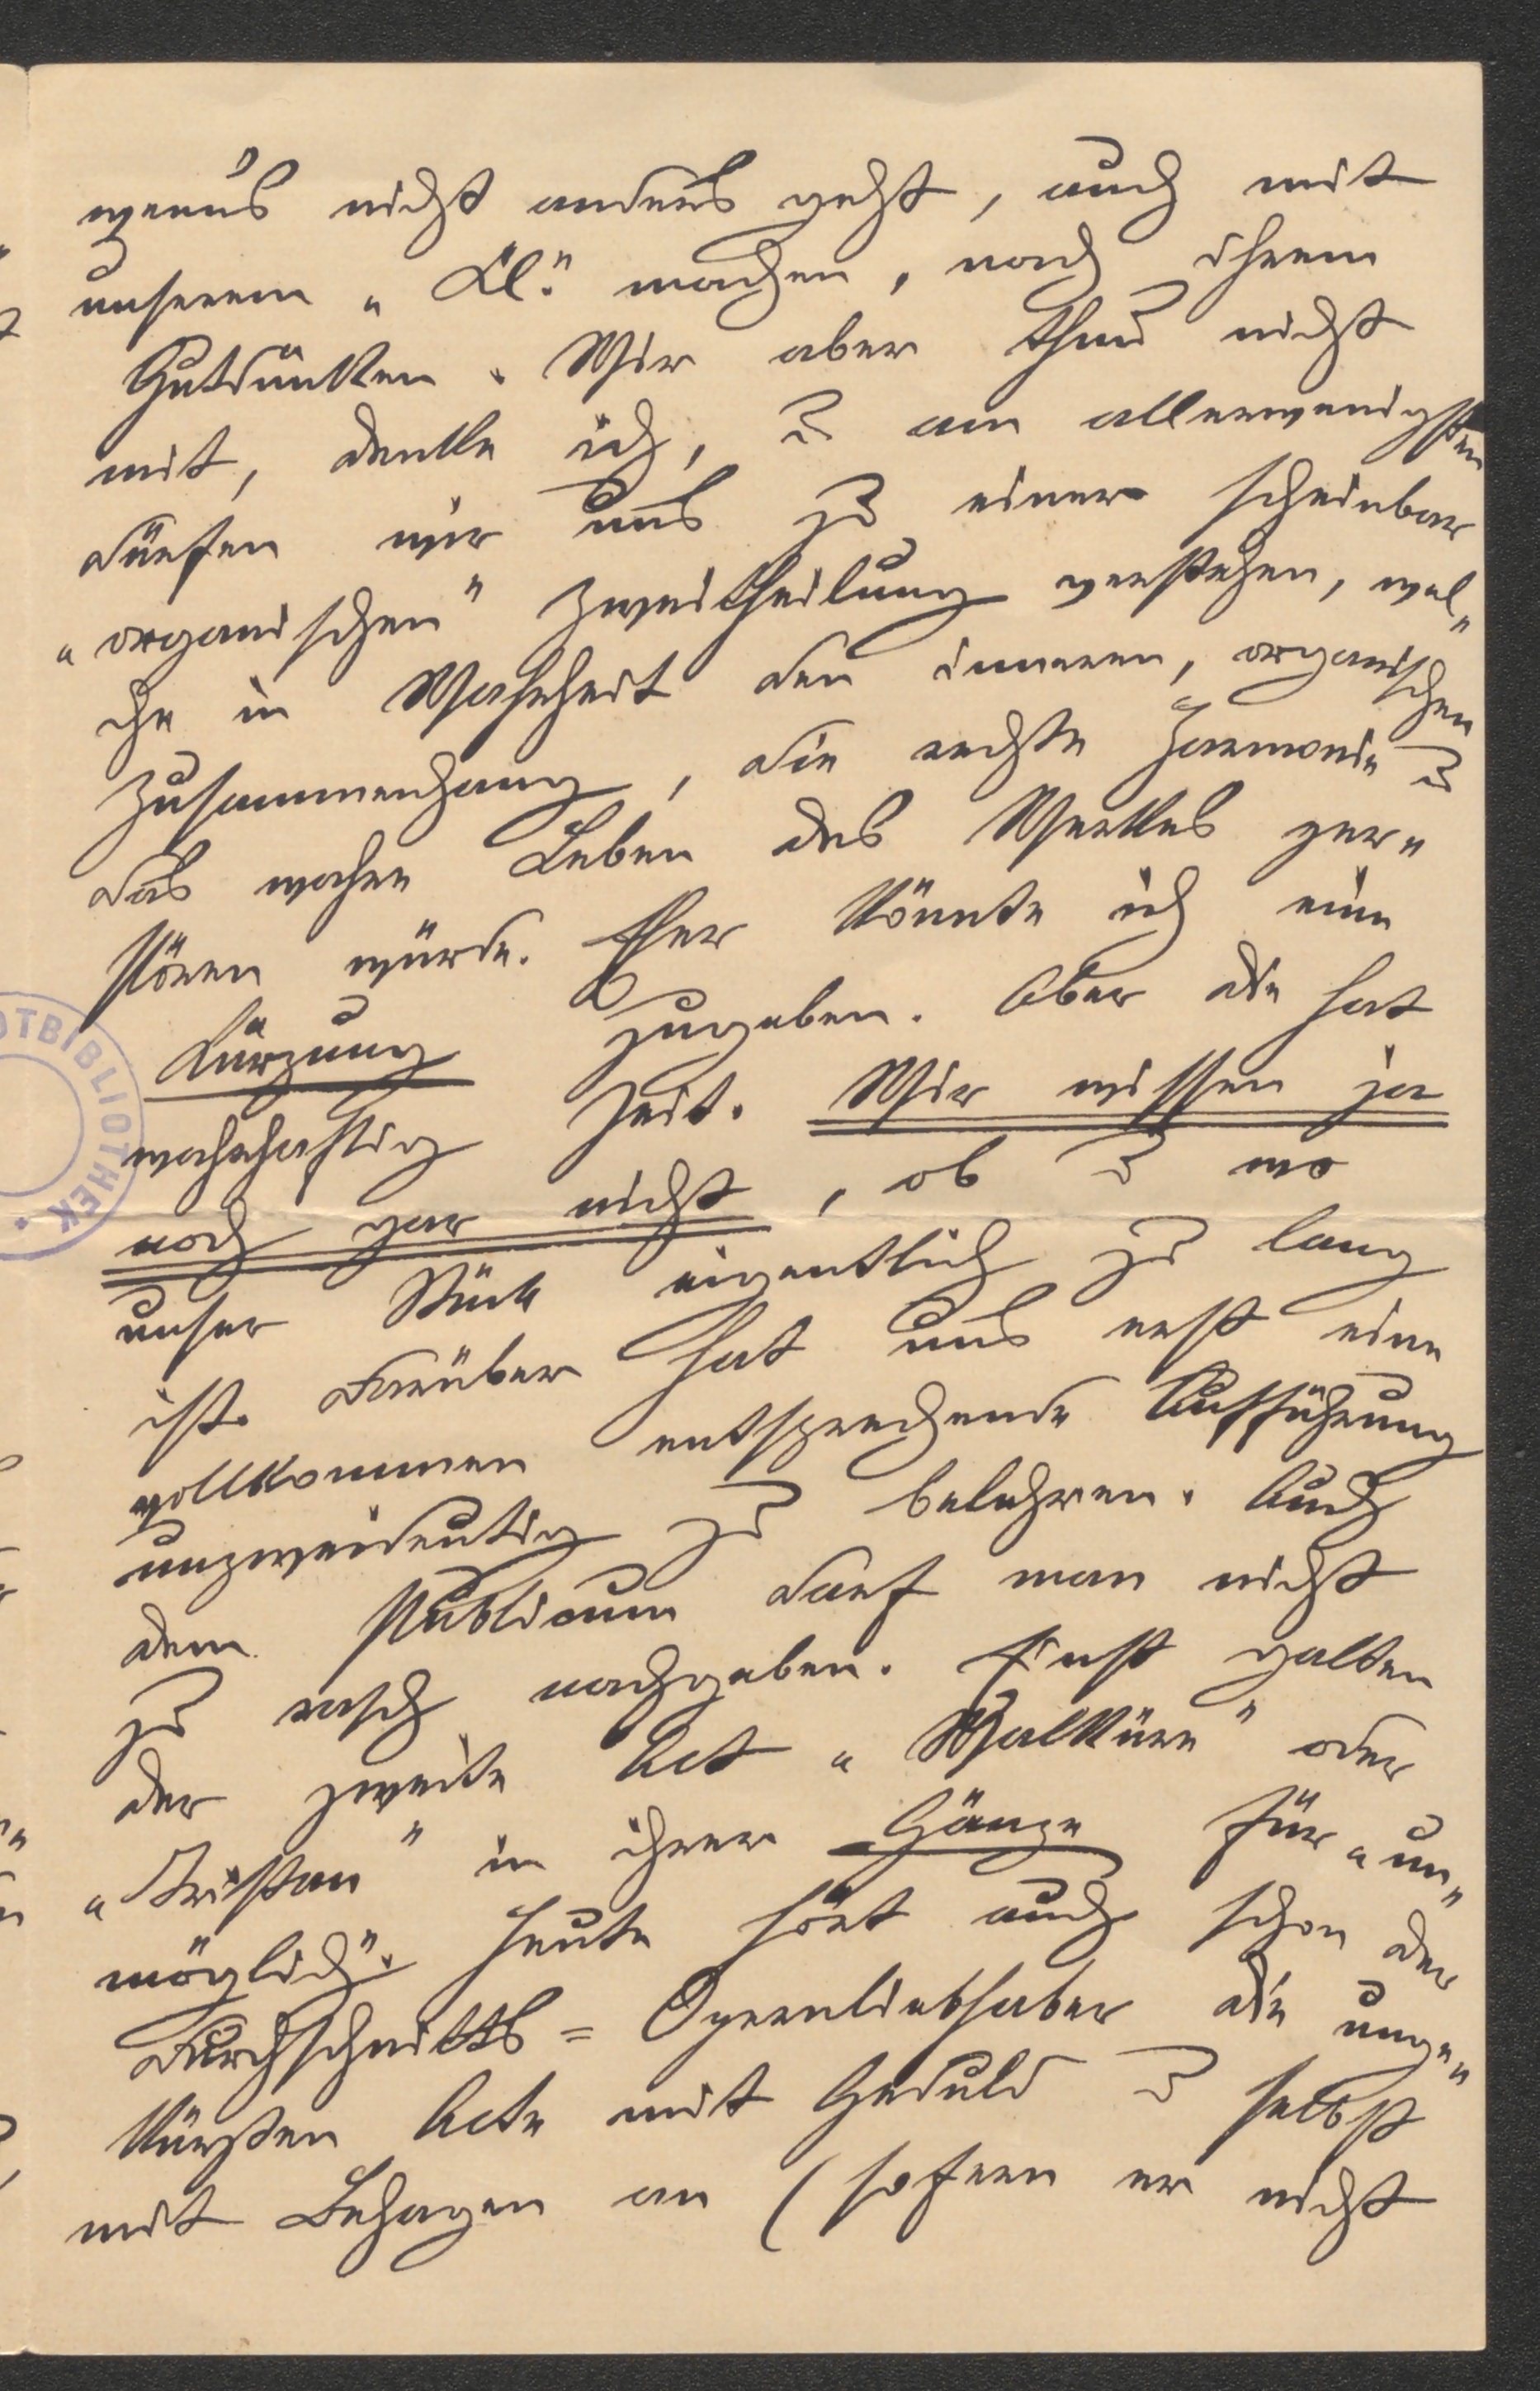 wenn's nicht anders geht, auch mit
unserem „Ll." machen, nach ihrem
Gutdünken. Wir aber thun nicht
mit, denke ich, u am allerwenigsten
dürfen wir uns zu einer scheinbar
„organischen" Zweitheilung verstehen, wel„
che in Wahrheit den inneren, organischen
Zusammenhang, die rechte Harmonie u
das wahre Leben des Werkes zer„
stören würde. Eher könnte ich eine
Kürzung zugeben. Aber die hat
wahrhaftig Zeit. Wir wissen ja
noch gar nicht, ob u wo
unser Stück eigentlich zu lang
ist. Darüber hat uns erst eine
vollkommen entsprechende Aufführung
unzweideutig zu belehren. Auch
dem Publicum darf man nicht
zu rasch nachgeben. Einst galten
der zweite Act „Walküre" oder
„Tristan" in ihrer Gänze für „un„
möglich". Heute hört auch schon der
Durchschnitts=Opernliebhaber die unge„
kürzten Acte mit Geduld u selbst
mit Behagen an (sofern er nicht
OTBIBLIOTHEK